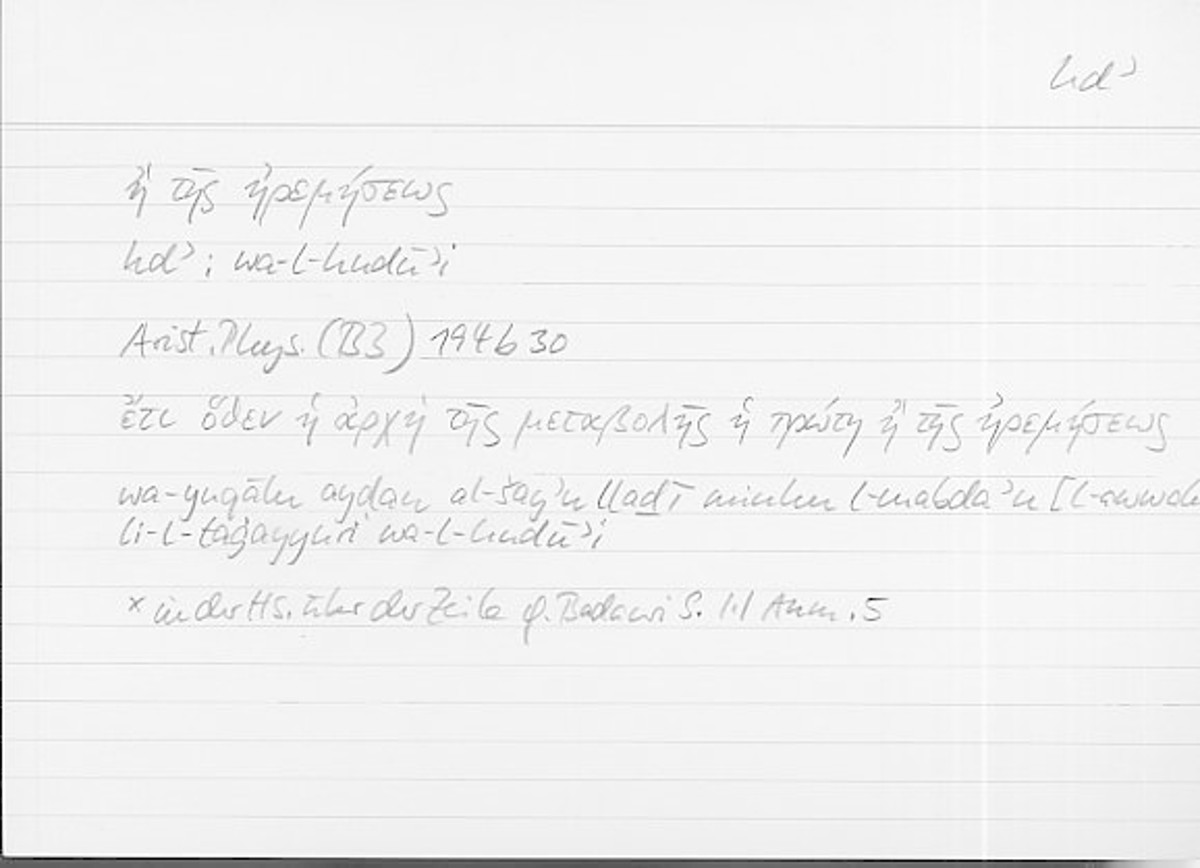 hdʾ
ἢ τῆς ἠρεμήσεως
hdʾ ; wa-l-hudūʾi
Arist. Phys. (B3) 194b30
ἔτι ὅθεν ἡ ἀρχὴ τῆς μεταβολῆς ἡ πρώτη ἢ τῆς ἠρεμήσεως
wa-yuqālu ayḍan al-šayʾu lladī minhu l-mabdaʾu [l-awwa
li-l-taġayyuri wa-l-hudūʾi
× in der Hs. über der Zeile Badawi S. Anm. 5